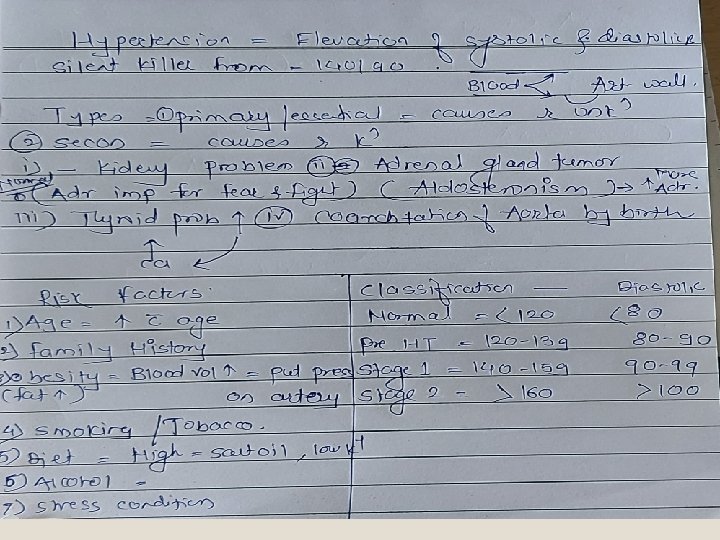 Hypertension = Elevation of systolic & diastolic
silent killer from - 140/90.
Blood < Art wall.
Types = ① primary /essential = causes r unk?
② secon = causes r k?
i) - Kideny problem ii) Adrenal gland tumor
(Adr imp for fear & fight) (Aldosteronism) → ↑ more Adr.
iii) Thyroid prob ↑ iv) coarctation of Aorta by birth
↑ ca
Risk factors
1) Age = ↑ c̄ age
2) family History
3) obesity = Blood vol ↑ = put pres
(fat ↑) on artery
4) smoking / Tobacco.
5) Diet = High = salt oil, low k+
6) Alcohol -
7) stress condition
classification — Diastolic
Normal = < 120 < 80
Pre HT = 120-139 80-90
Stage 1 = 140-159 90-99
Stage 2 - > 160 > 100